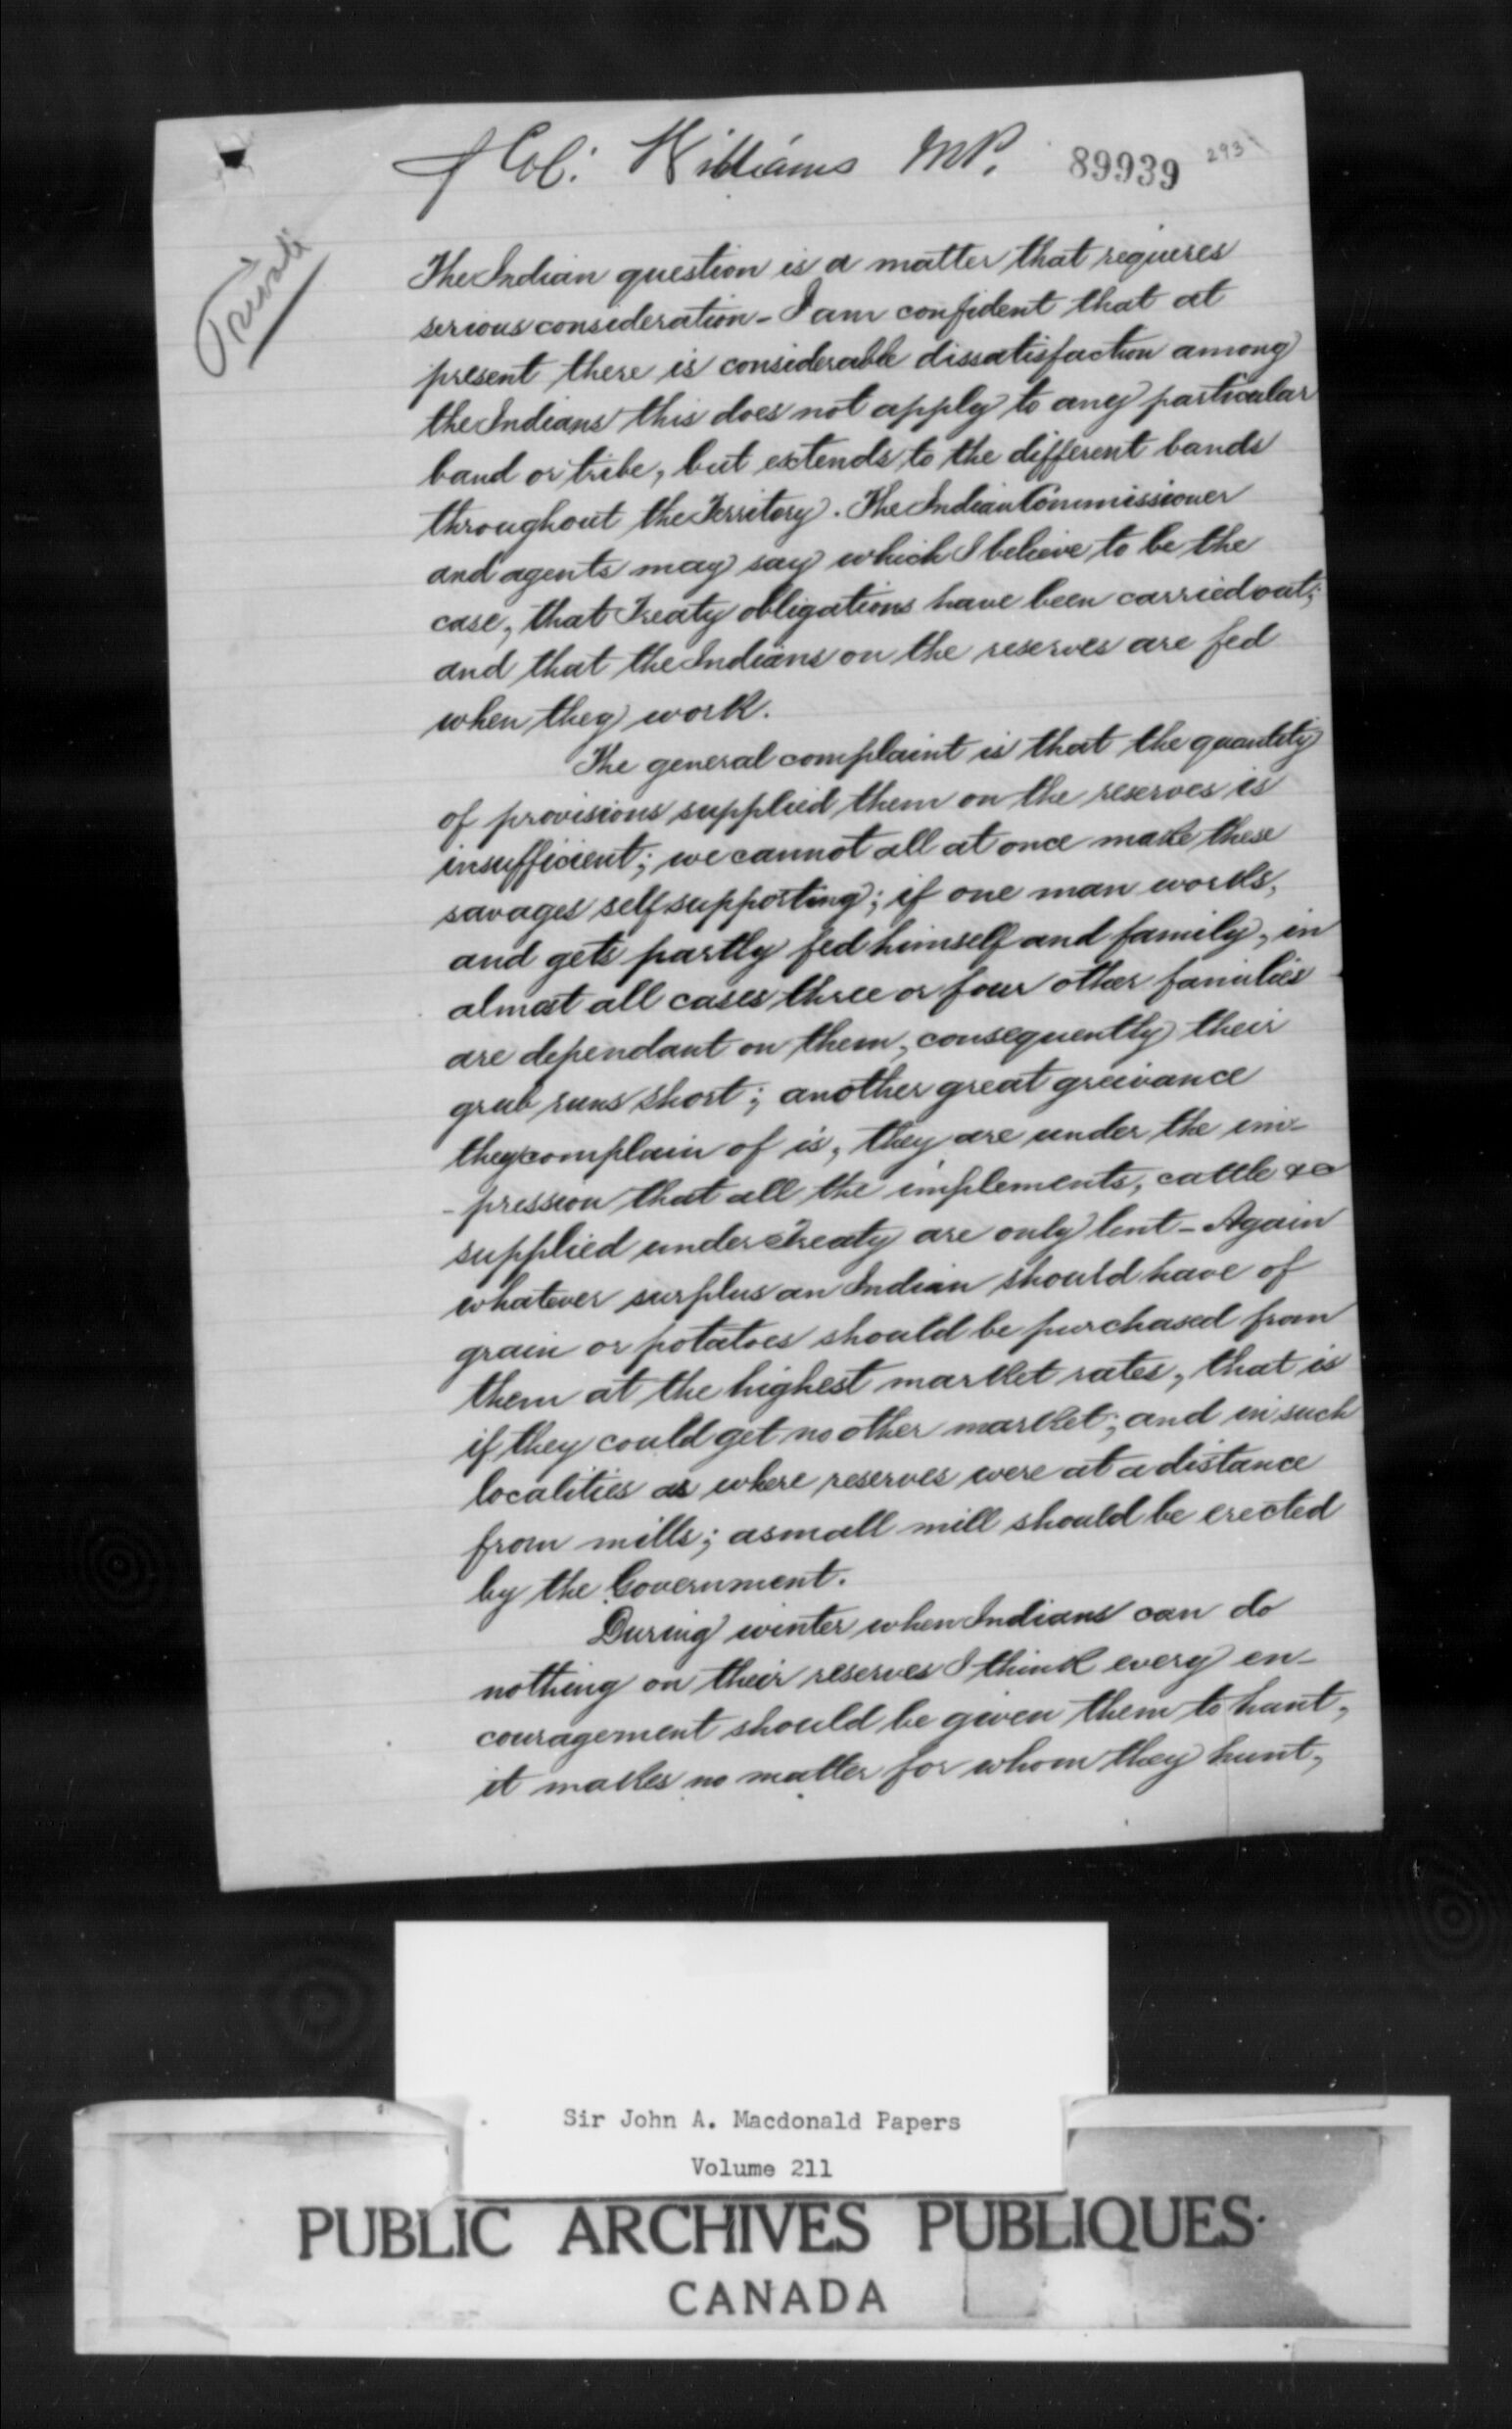 Col: Williams M.P. 89939 293
Private
The Indian question is a matter that requires
serious consideration - I am confident that at
present there is considerable dissatisfaction among
the Indians this does not apply to any particular
band or tribe, but extends to the different bands
throughout the Territory. The Indian Commissioner
and agents may say which I believe to be the
case, that Treaty obligations have been carried out;
and that the Indians on the reserves are fed
when they work.
The general complaint is that the quantity
of provisions supplied them on the reserves is
insufficient; we cannot all at once make these
savages self supporting; if one man works,
and gets partly fed himself and family, in
almost all cases three or four other families
are dependant on them, consequently their
grub runs short; another great greivance
they complain of is, they are under the im-
-pression that all the implements, cattle &c
supplied under Treaty are only lent - Again
whatever surplus an Indian should have of
grain or potatoes should be purchased from
them at the highest market rates, that is
if they could get no other market; and in such
localities as where reserves were at a distance
from mills; a small mill should be erected
by the Government.
During winter when Indians can do
nothing on their reserves I think every en-
couragement should be given them to hunt,
it makes no matter for whom they hunt,
Sir John A. Macdonald Papers
Volume 211
PUBLIC ARCHIVES PUBLIQUES
CANADA